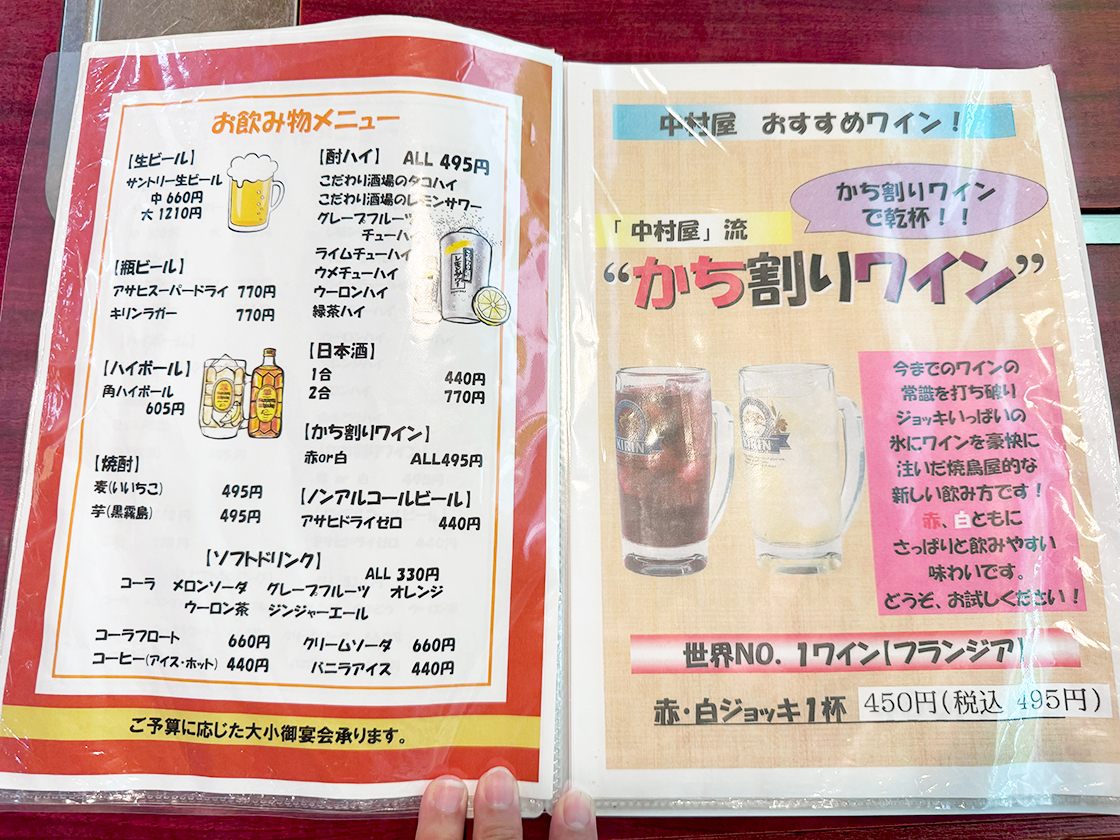 お飲み物メニュー
【生ビール】
サントリー生ビール
中 660円
大 1210円
【瓶ビール】
アサヒスーパードライ 770円
キリンラガー 770円
【ハイボール】
角ハイボール
605円
【焼酎】
麦(いいちこ) 495円
芋(黒霧島) 495円
【酎ハイ】 ALL 495円
こだわり酒場のタコハイ
こだわり酒場のレモンサワー
グレープフルーツ
チューハイ
ライムチューハイ
ウメチューハイ
ウーロンハイ
緑茶ハイ
【日本酒】
1合 440円
2合 770円
【かち割りワイン】
赤or白 ALL495円
【ノンアルコールビール】
アサヒドライゼロ 440円
【ソフトドリンク】
ALL 330円
コーラ メロンソーダ グレープフルーツ オレンジ
ウーロン茶 ジンジャーエール
コーラフロート 660円 クリームソーダ 660円
コーヒー(アイス・ホット) 440円 バニラアイス 440円
ご予算に応じた大小御宴会承ります。
中村屋 おすすめワイン！
かち割りワイン
で乾杯！！
「中村屋」流
“かち割りワイン”
KIRIN
KIRIN
今までのワインの
常識を打ち破り
ジョッキいっぱいの
氷にワインを豪快に
注いだ焼鳥屋的な
新しい飲み方です！
赤、白ともに
さっぱりと飲みやすい
味わいです。
どうぞ、お試しください！
世界NO.1ワイン【フランジア】
赤・白ジョッキ1杯 450円(税込 495円)